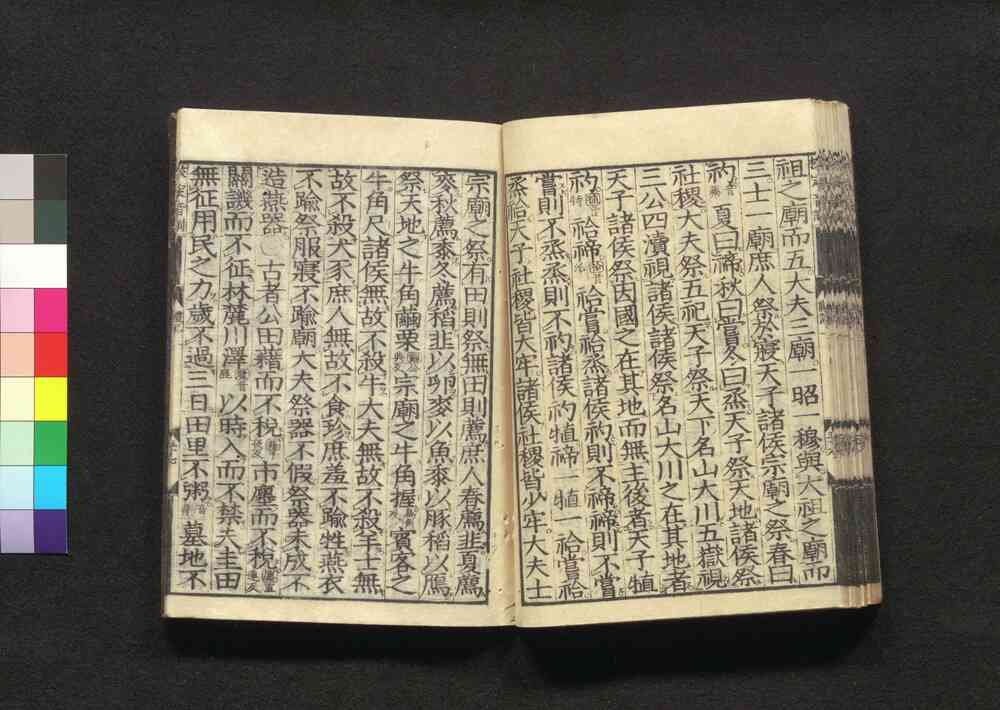 祖之廟而五大夫三廟一昭一穆與大祖之廟而
三士一廟庶人祭於寢天子諸侯宗廟之祭春曰
礿夏曰禘秋曰嘗冬曰烝天子祭天地諸侯祭
社稷大夫祭五祀天子祭天下名山大川五嶽視
三公四瀆視諸侯諸侯祭名山大川之在其地者
天子諸侯祭因國之在其地而無主後者天子犆
礿祫禘祫嘗祫烝諸侯礿則不禘禘則不嘗
嘗則不烝烝則不礿諸侯礿犆禘一犆一祫嘗祫
烝祫天子社稷皆大牢諸侯社稷皆少牢大夫士
宗廟之祭有田則祭無田則薦庶人春薦韭夏薦
麥秋薦黍冬薦稻韭以卵麥以魚黍以豚稻以鴈
祭天地之牛角繭栗宗廟之牛角握賓客之
牛角尺諸侯無故不殺牛大夫無故不殺羊士無
故不殺犬豕庶人無故不食珍庶羞不踰牲燕衣
不踰祭服寢不踰廟大夫祭器不假祭器未成不
造燕器〇古者公田藉而不稅市廛而不稅
關譏而不征林麓川澤以時入而不禁夫圭田
無征用民之力歲不過三日田里不粥墓地不